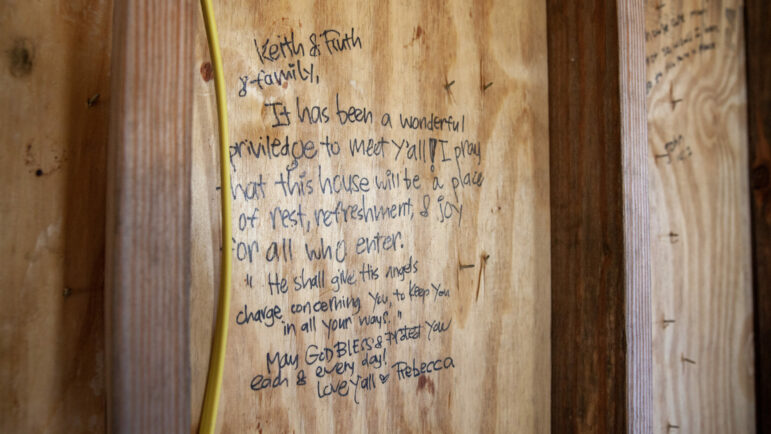 Keith & Ruth
& family,
It has been a wonderful
priviledge to meet y'all! I pray
hat this house will be a place
of rest, refreshment, & joy
or all who enter.
" He shall give His angels
charge concerning you, to keep you
in all your ways. "
May GOD BLESS & Protect You
each & every day!
Love y'all ♥ Rebecca